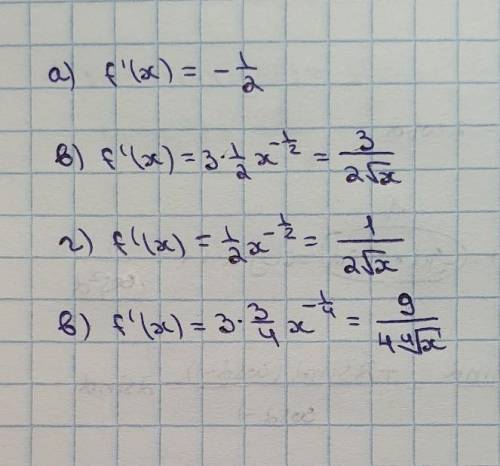 а) f'(x) = -1/2
в) f'(x) = 3·1/2 x^(-1/2) = 3/(2√x)
г) f'(x) = 1/2 x^(-1/2) = 1/(2√x)
в) f'(x) = 3·3/4 x^(-1/4) = 9/(4∜x)